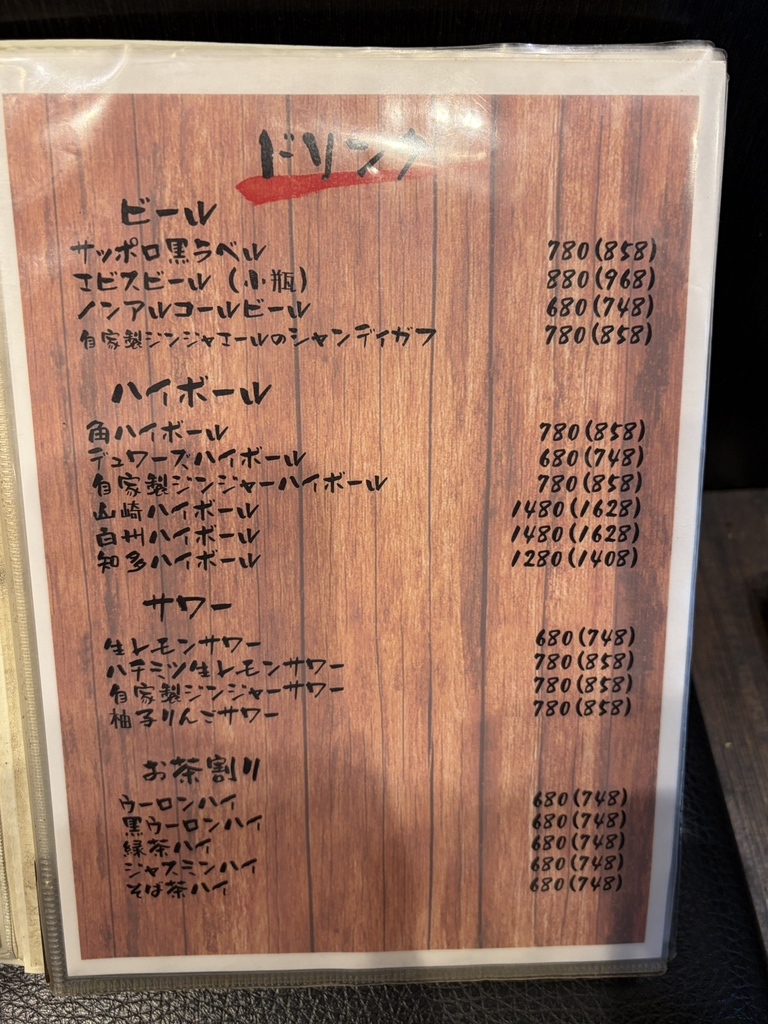 ドリンク
ビール
サッポロ黒ラベル 780(858)
エビスビール (小瓶) 880(968)
ノンアルコールビール 680(748)
自家製ジンジャエールのシャンディガフ 780(858)
ハイボール
角ハイボール 780(858)
デュワーズハイボール 680(748)
自家製ジンジャーハイボール 780(858)
山崎ハイボール 1480(1628)
白州ハイボール 1480(1628)
知多ハイボール 1280(1408)
サワー
生レモンサワー 680(748)
ハチミツ生レモンサワー 780(858)
自家製ジンジャーサワー 780(858)
柚子りんごサワー 780(858)
お茶割り
ウーロンハイ 680(748)
黒ウーロンハイ 680(748)
緑茶ハイ 680(748)
ジャスミンハイ 680(748)
そば茶ハイ 680(748)